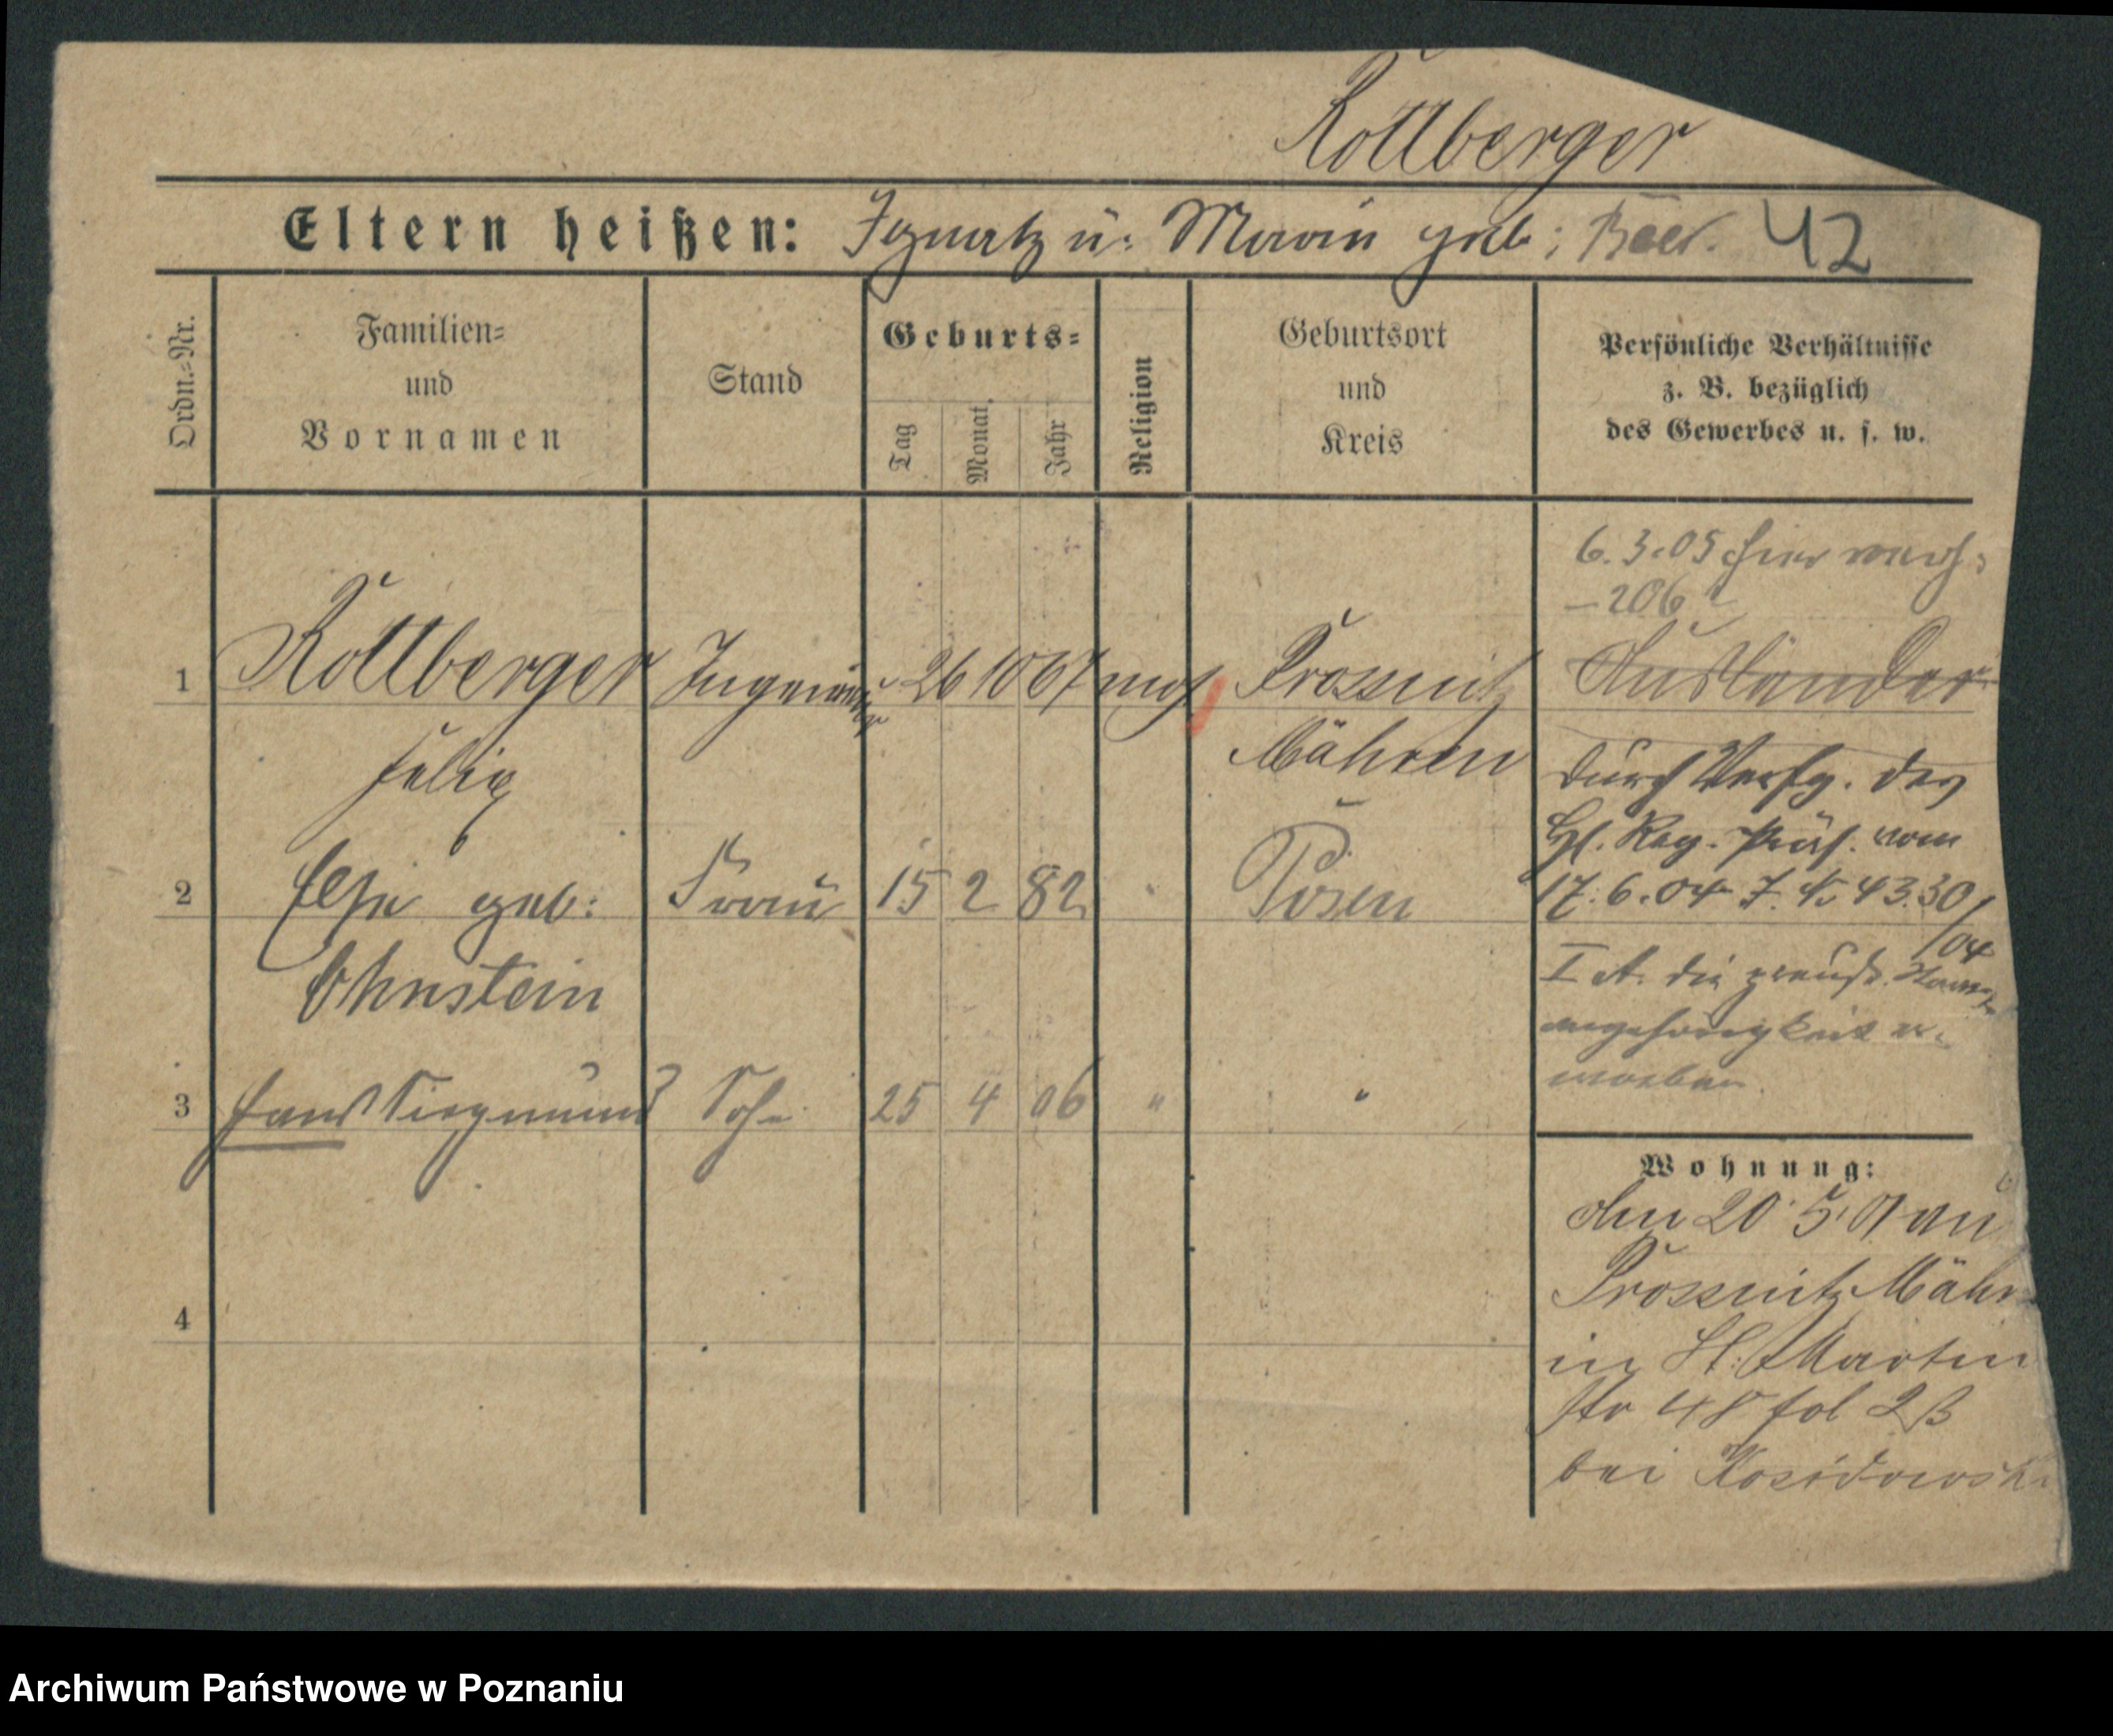 Rottberger
Eltern heißen: Ignatz u. Marie geb: Beer. 42
Ordn.-Nr.
Familien-
und
Vornamen
Stand
Geburts-
Tag
Monat
Jahr
Religion
Geburtsort
und
Kreis
Persönliche Verhältnisse
z. B. bezüglich
des Gewerbes u. s. w.
6.3.05 hier
-206
1 Rottberger Ingenieur 26 10 67 mos Prossnitz Ausländer
Felix Mähren durch Verfg. des
H. Reg. Präs. vom
2 Else geb: Frau 15 2 82 " Posen 17.6.04 43.30/04
Ohnstein
I A. die preuß. Staats-
angehörigkeit er-
worben.
3 Hans Siegmund Sohn 25 4 06 " "
Wohnung:
An 20.5.01 aus
Prossnitz Mähr
in St. Martin
Str 48 fol 23
bei Kosidowski
4
Archiwum Państwowe w Poznaniu